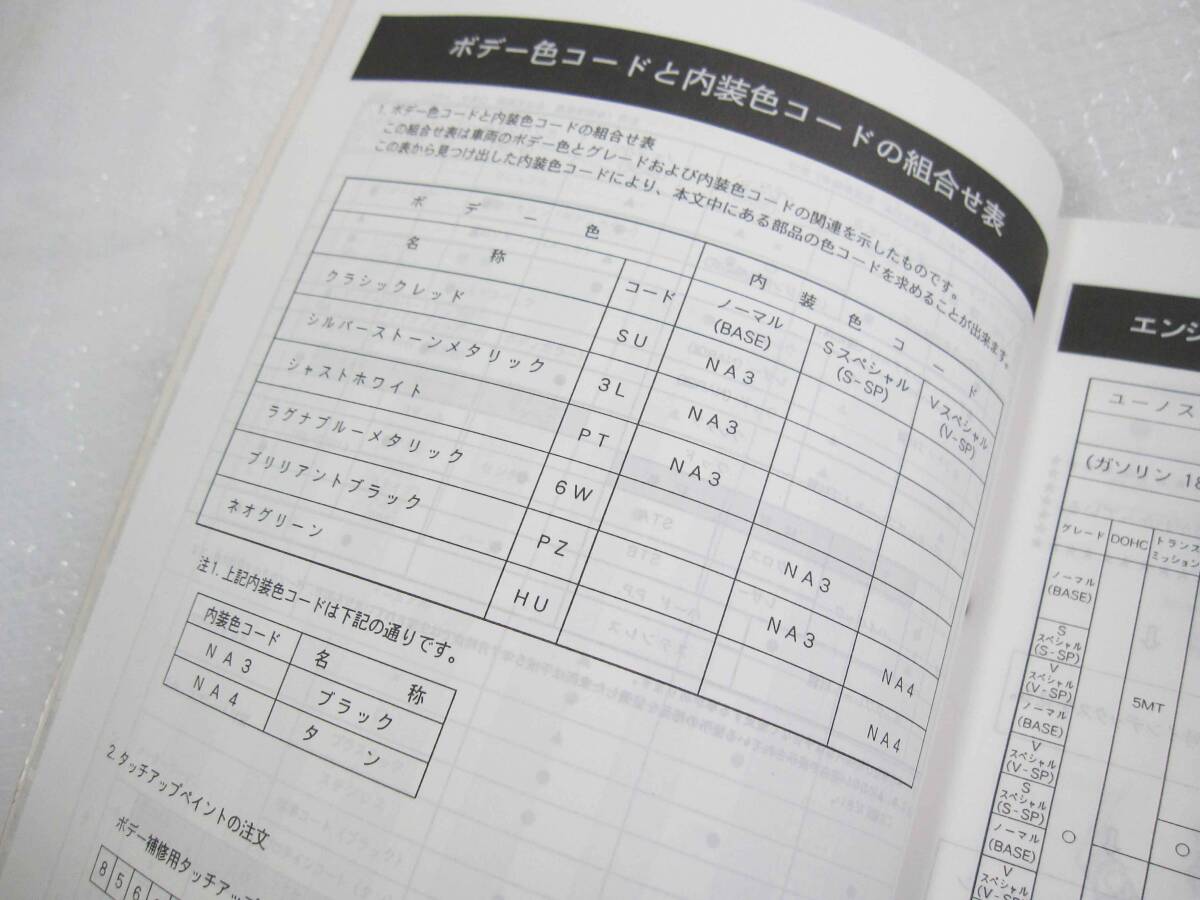 ボデー色コードと内装色コードの組合せ表
1. ボデー色コードと内装色コードの組合せ表
この組合せ表は車両のボデー色とグレードおよび内装色コードの関連を示したものです。
この表から見つけ出した内装色コードにより、本文中にある部品の色コードを求めることが出来ます。
ボデー色 内装色コード
名称 コード ノーマル(BASE) Sスペシャル(S-SP) Vスペシャル(V-SP)
クラシックレッド SU NA3
シルバーストーンメタリック 3L NA3
シャストホワイト PT NA3
ラグナブルーメタリック 6W NA3
ブリリアントブラック PZ NA3 NA4
ネオグリーン HU NA4
注1. 上記内装色コードは下記の通りです。
内装色コード 名称
NA3 ブラック
NA4 タン
2. タッチアップペイントの注文
ボデー補修用タッチアップ
8 5 6
エンジ
ユーノス
(ガソリン 18
グレード DOHC トランスミッション
ノーマル(BASE)
Sスペシャル(S-SP)
Vスペシャル(V-SP)
5MT
ノーマル(BASE)
Vスペシャル(V-SP)
Sスペシャル(S-SP)
ノーマル(BASE) ○ ○
Vスペシャル(V-SP)